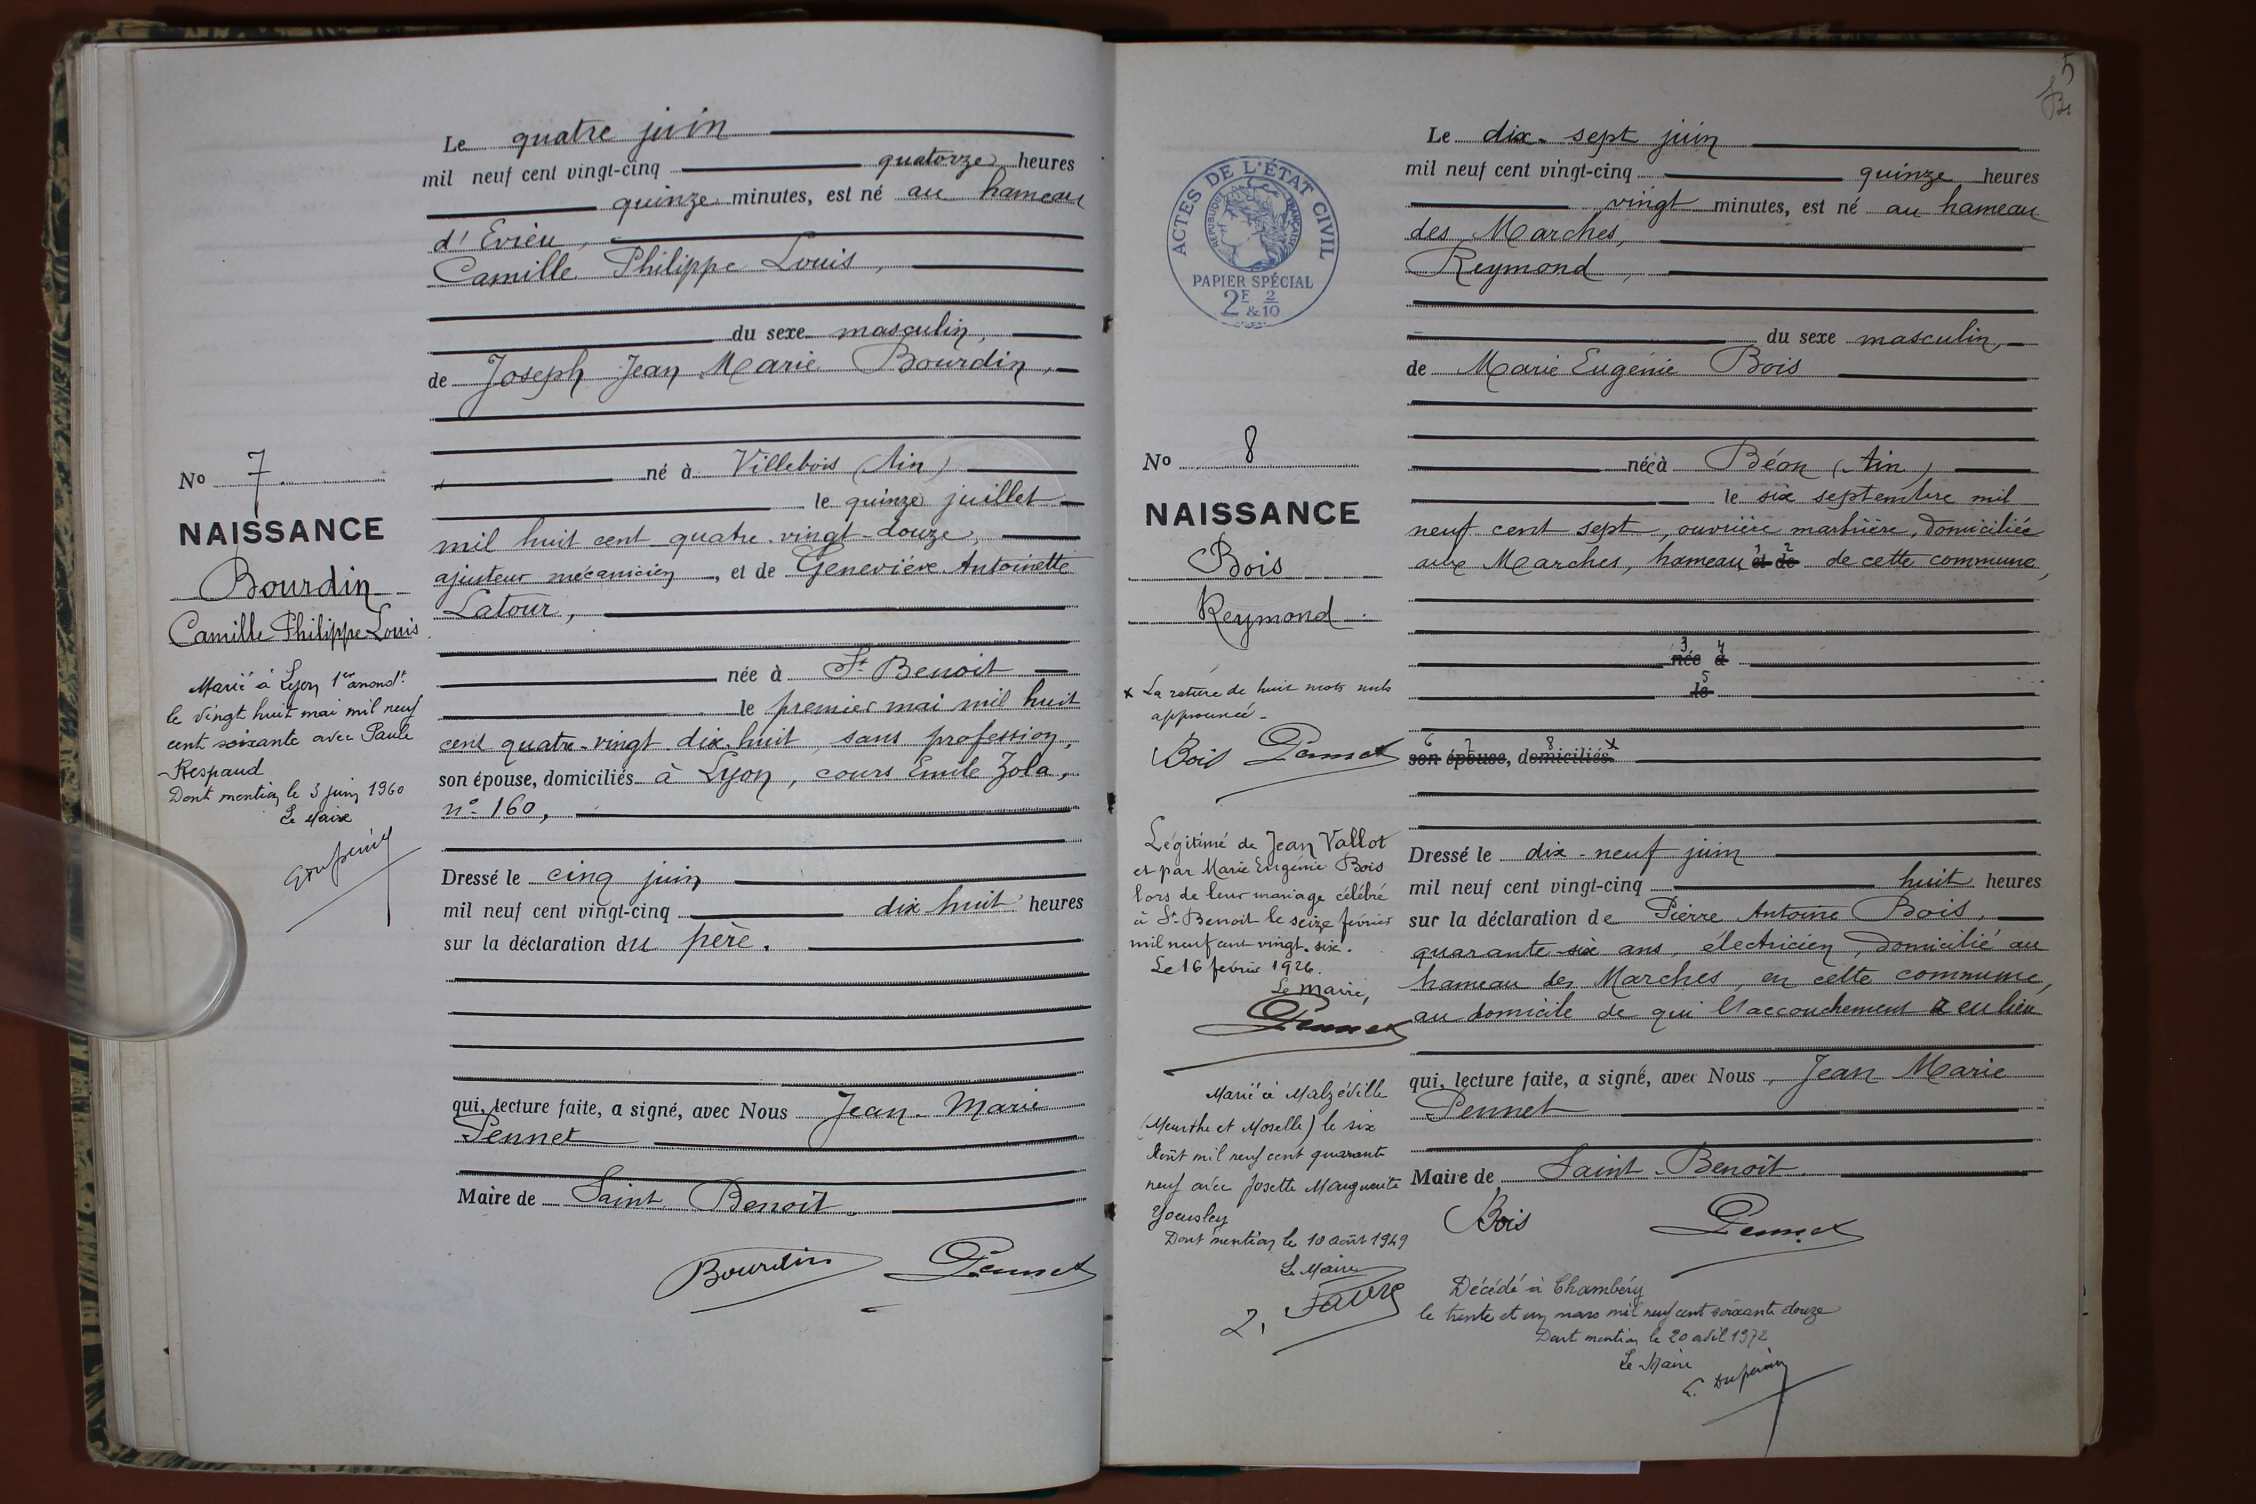 Le quatre juin
mil neuf cent vingt-cinq quatorze heures
quinze minutes, est né au hameau
d'Evieu,
Camille Philippe Louis,
du sexe masculin,
de Joseph Jean Marie Bourdin,
né à Villebois (Ain)
le quinze juillet
mil huit cent quatre-vingt-douze,
ajusteur mécanicien, et de Geneviève Antoinette
Latour,
née à St Benoit
le premier mai mil huit
cent quatre-vingt dix-huit, sans profession,
son épouse, domiciliés à Lyon, cours Emile Zola,
n° 160,
Dressé le cinq juin
mil neuf cent vingt-cinq dix huit heures
sur la déclaration du père.
qui, lecture faite, a signé, avec Nous Jean-Marie
Pennet
Maire de Saint Benoît.
Bourdin Pennet
No 7
NAISSANCE
Bourdin
Camille Philippe Louis
Marié à Lyon 1er arrondt
le vingt huit mai mil neuf
cent soixante avec Paule
Respaud
Dont mention le 3 juin 1960
Le Maire
5
Le dix-sept juin
mil neuf cent vingt-cinq quinze heures
vingt minutes, est né au hameau
des Marches,
Reymond,
du sexe masculin,
de Marie Eugénie Bois
née à Béon (Ain)
le six septembre mil
neuf cent sept, ouvrière marbrière, domiciliée
aux Marches, hameau et de de cette commune,
1 2
3 4
née à
5
le
6 7 8
son épouse, domiciliés x
Dressé le dix-neuf juin
mil neuf cent vingt-cinq huit heures
sur la déclaration de Pierre Antoine Bois,
quarante-six ans, électricien, domicilié au
hameau des Marches, en cette commune,
au domicile de qui l'accouchement a eu lieu
qui, lecture faite, a signé, avec Nous, Jean Marie
Pennet
Maire de Saint-Benoît
Bois Pennet
Décédé à Chambéry
le trente et un mars mil neuf cent soixante douze
Dont mention le 20 avril 1972
Le Maire
ACTES DE L'ÉTAT CIVIL
RÉPUBLIQUE FRANÇAISE
PAPIER SPÉCIAL
2F 2
&10
No 8
NAISSANCE
Bois
Reymond
x La rature de huit mots nuls
approuvée-
Bois Pennet
Légitimé de Jean Vallot
et par Marie Eugénie Bois
lors de leur mariage célébré
à St Benoit le seize février
mil neuf cent vingt-six.
Le 16 février 1926.
Le Maire,
Pennet
Marié à Malzéville
(Meurthe et Moselle) le six
Août mil neuf cent quarante
neuf avec Josette Marguerite
Dont mention le 10 Août 1949
Le Maire
Favre